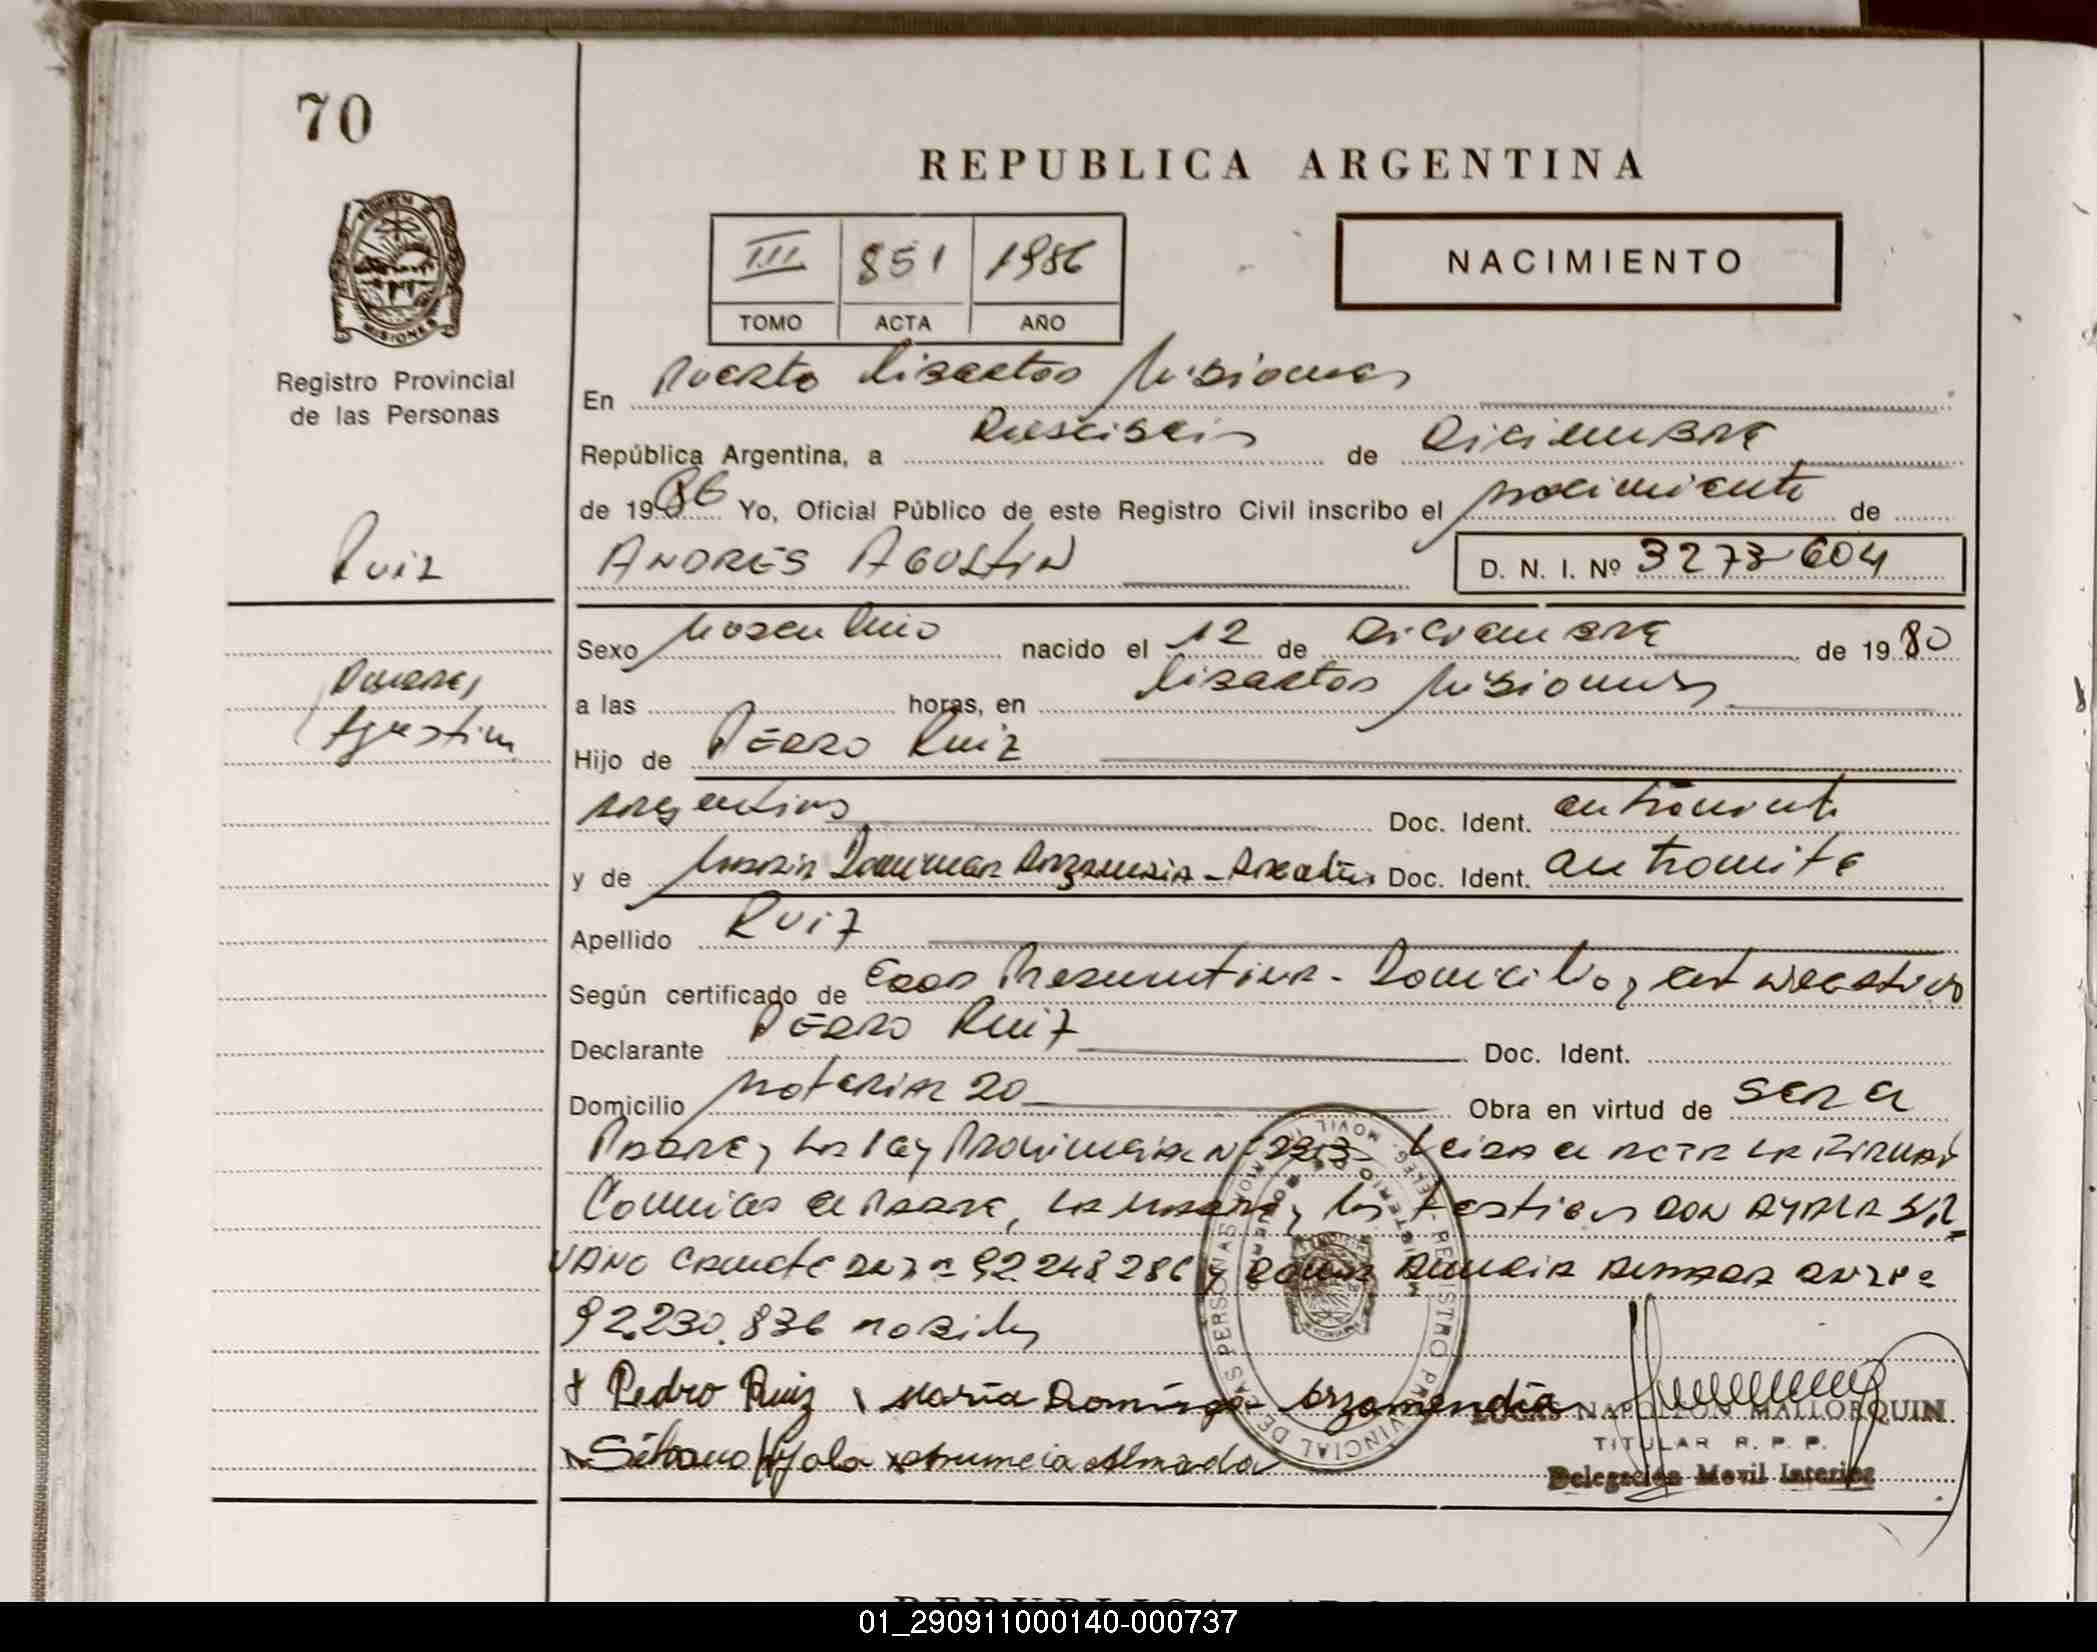 70
REPUBLICA ARGENTINA
III 851 1986
TOMO ACTA AÑO
NACIMIENTO
MISIONES
Registro Provincial
de las Personas
En Puerto Libertad Misiones
República Argentina, a Dieciseis de Diciembre
de 1986 Yo, Oficial Público de este Registro Civil inscribo el nacimiento de
Ruiz
ANDRES AGUSTIN D. N. I. Nº 3273 604
Sexo Masculino nacido el 12 de Diciembre de 1980
Andres
Agustin
a las horas, en Libertad Misiones
Hijo de PEDRO Ruiz
Argentino Doc. Ident. en tramite
y de Maria Dominga Arzamendia - Argentina Doc. Ident. en tramite
Apellido Ruiz
Según certificado de Edad Presuntiva - Domicilio y
Declarante PEDRO Ruiz Doc. Ident.
Domicilio 20 Obra en virtud de SER el
PADRE y la ley Provincial Nº Leida el ACTA LA FIRMAN
Conmigo el PADRE, LA MADRE y los testigos DON AYALA SIL
VANO DNI Nº 92.248.286 y DOÑA ALMADA DNI Nº
92.230.836
Pedro Ruiz María Domínga Arzamendia
Silvano Ayala Almada
LUCAS NAPOLEON MALLORQUIN
TITULAR R. P. P.
Delegación Movil Interior
REGISTRO PROVINCIAL DE LAS PERSONAS
REPUBLICA
01_290911000140-000737